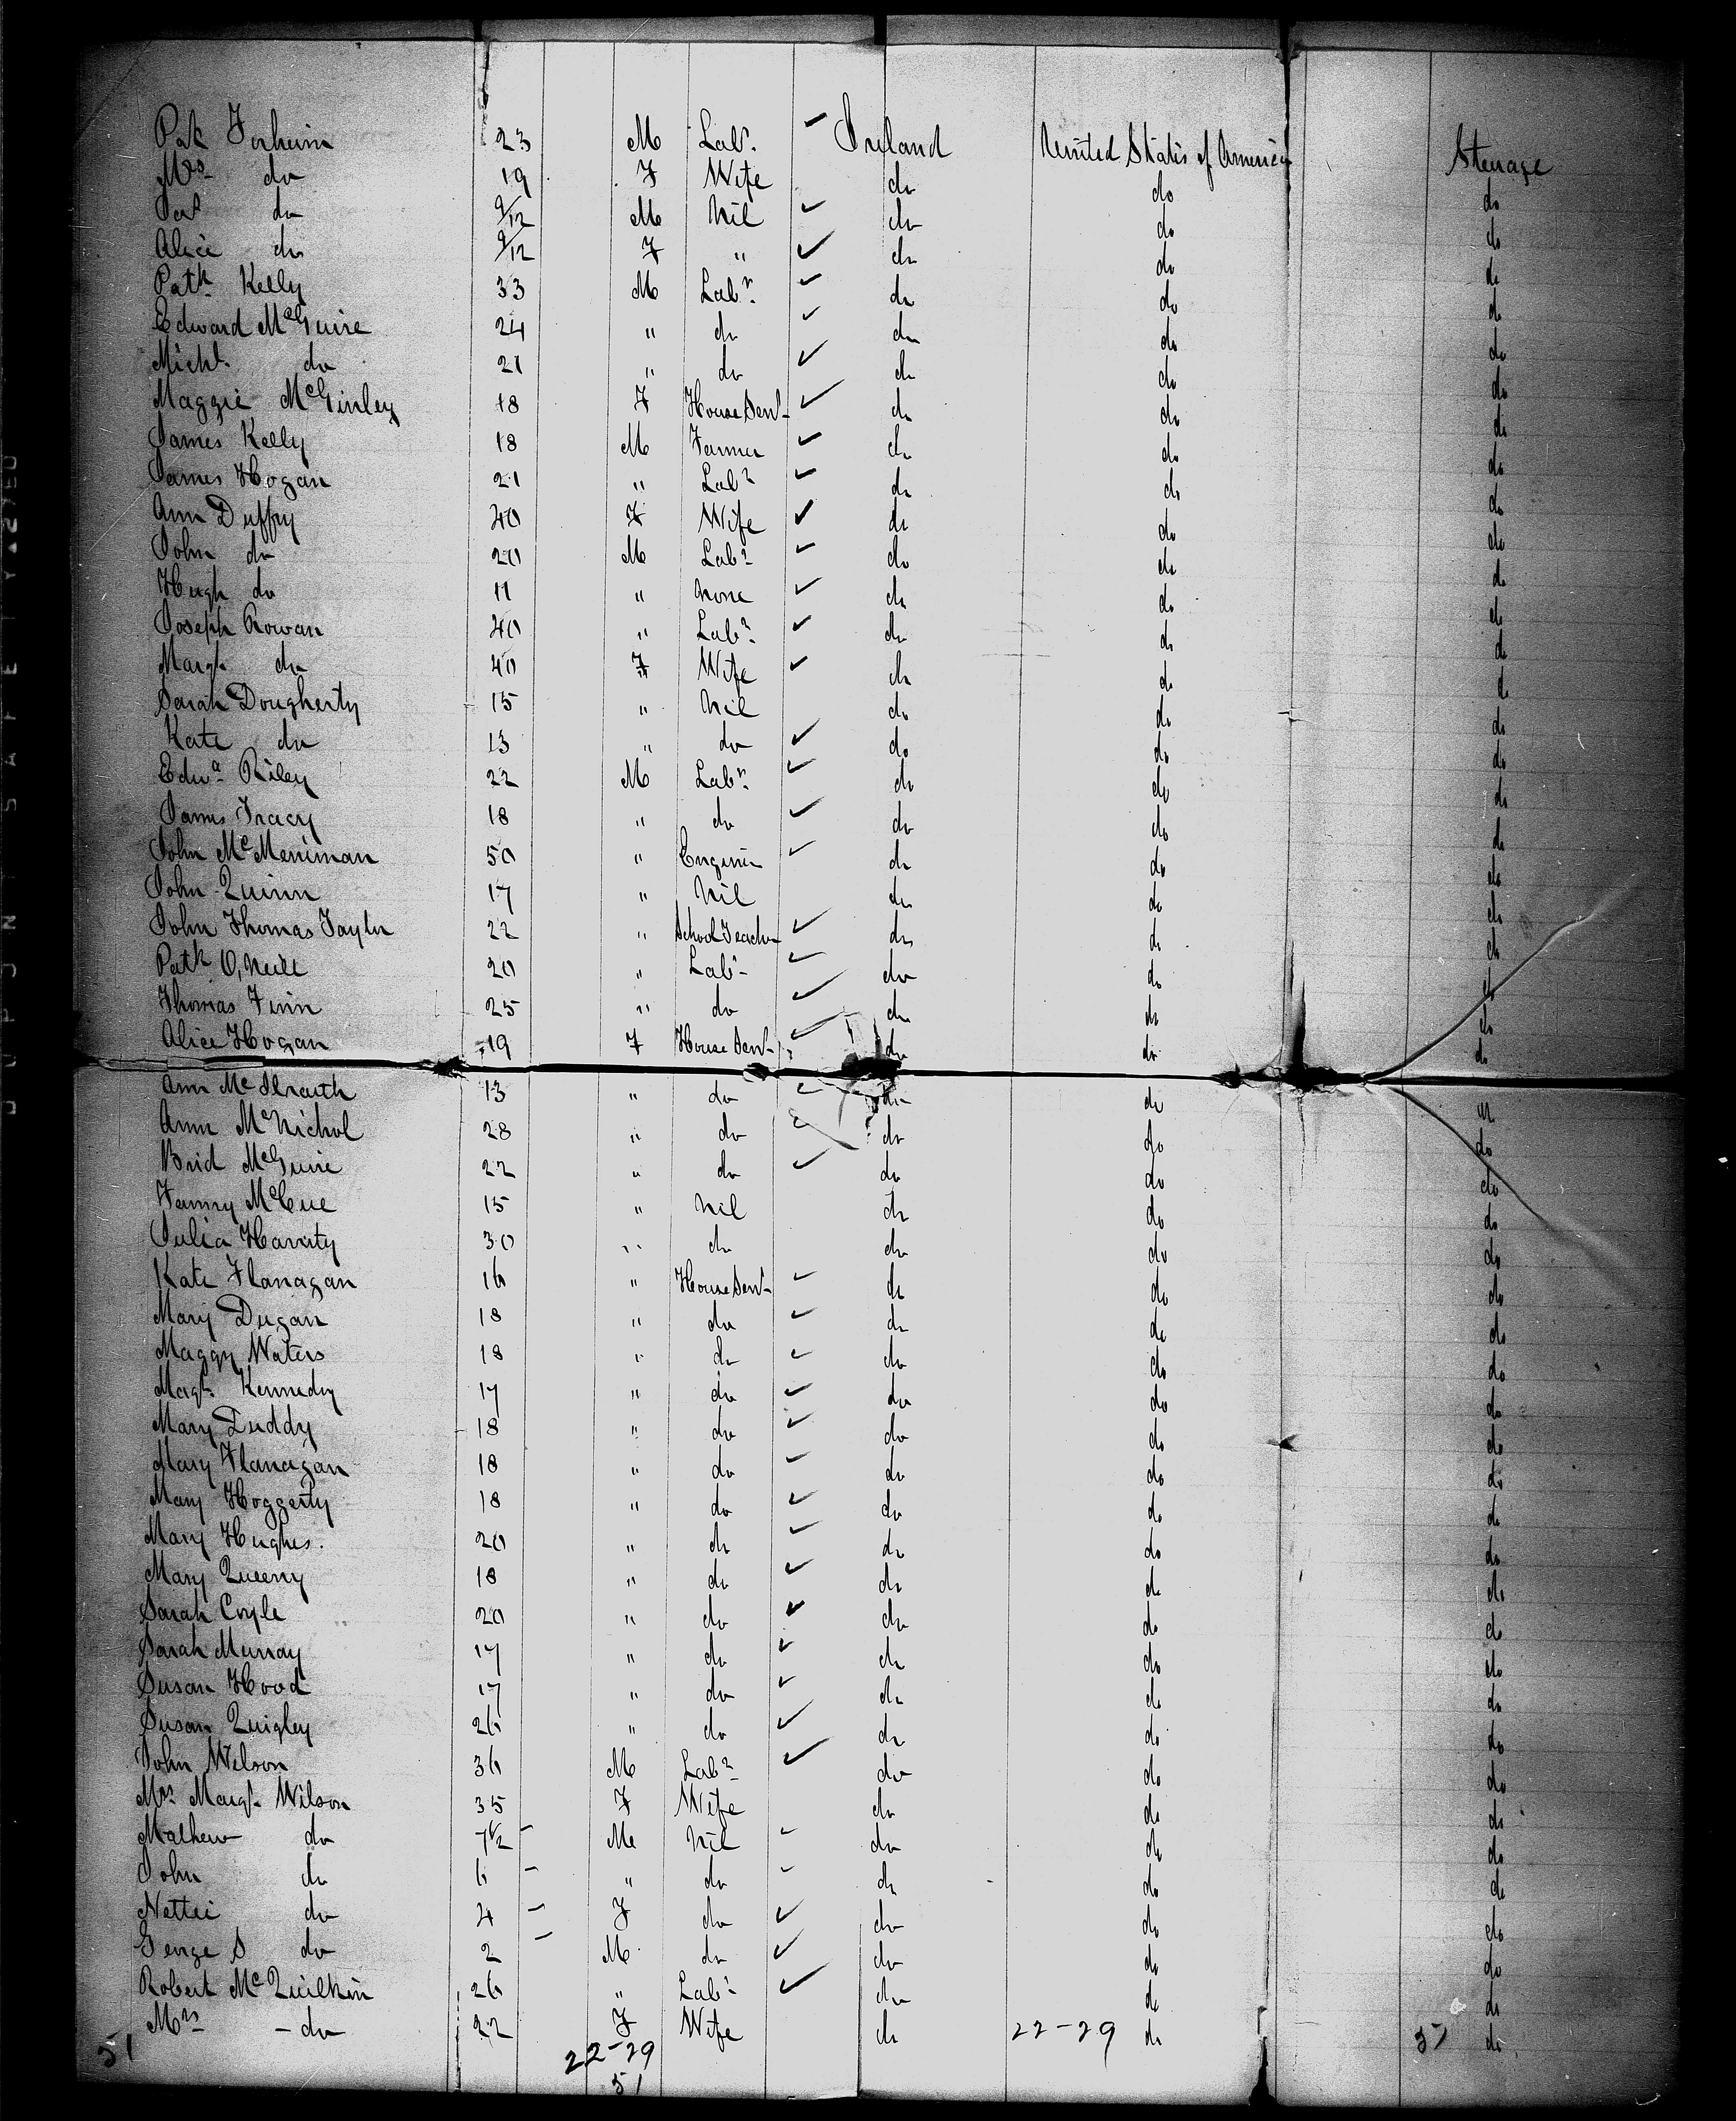 Pat 23 M Labr. Ireland United States of America Steerage
Mrs do 19 F Wife do do do
Pat do 9/12 M Nil do do do
Alice do 9/12 F " do do do
Patk Kelly 33 M Labr. do do do
Edward McGuire 24 " do do do do
Michl. do 21 " do do do do
Maggie McGinley 18 F House Servt do do do
James Kelly 18 M Farmer do do do
James Hogan 21 " Labr do do do
Ann Duffy 40 F Wife do do do
John do 20 M Labr do do do
Hugh do 11 " None do do do
Joseph Rowan 40 " Labr. do do do
Margt do 40 F Wife do do do
Sarah Dougherty 15 " Nil do do do
Kate do 13 " do do do do
Edwd Riley 22 M Labr. do do do
James Tracy 18 " do do do do
John McMeniman 50 " Engineer do do do
John Quinn 17 " Nil do do do
John Thomas Taylor 22 " School Teacher do do do
Patk O,Neill 20 " Labr do do do
Thomas Finn 25 " do do do do
Alice Hogan 19 F House Servt do do do
Ann 13 " do do do do
Ann McNichol 28 " do do do do
Brid McGuire 22 " do do do do
Fanny McCue 15 " Nil do do do
Julia Havity 30 " do do do do
Kate Flanagan 16 " House Servt do do do
Mary Dugan 18 " do do do do
Maggy Waters 18 " do do do do
Magt. Kennedy 17 " do do do do
Mary Duddy 18 " do do do do
Mary Flanagan 18 " do do do do
Mary Hoggerty 18 " do do do do
Mary Hughes. 20 " do do do do
Mary Queeny 18 " do do do do
Sarah Coyle 20 " do do do do
Sarah Murray 17 " do do do do
Susan Hood 17 " do do do do
Susan Quigley 26 " do do do do
John Wilson 36 M Labr do do do
Mrs Margt. Wilson 35 F Wife do do do
Mathew do 7½ M Nil do do do
John do 6 " do do do do
Nettie do 4 F do do do do
George S do 2 M do do do do
Robert McQuilkin 26 " Labr do do do
Mrs - do 22 F Wife do 22-29 do do
51 22-29
51